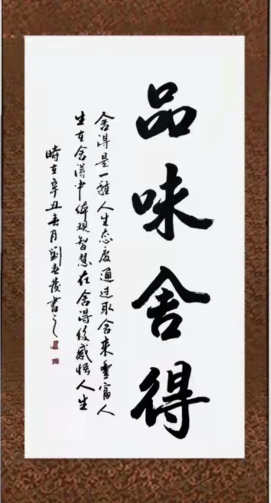 品味舍得
舍得是一種人生态度通过取舍来豐富人
生在舍得中体观智慧在舍得後感悟人生
時在辛丑春月劉老茂書之